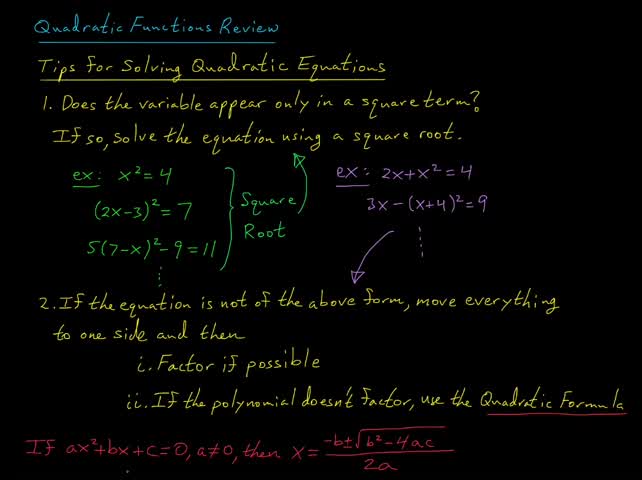 Quadratic Functions Review
Tips for Solving Quadratic Equations
1. Does the variable appear only in a square term?
If so, solve the equation using a square root.
ex: x² = 4
(2x-3)² = 7
5(7-x)² - 9 = 11
⋮
Square
Root
ex: 2x+x² = 4
3x-(x+4)² = 9
⋮
2. If the equation is not of the above form, move everything
to one side and then
i. Factor if possible
ii. If the polynomial doesn't factor, use the Quadratic Formula
If ax²+bx+c=0, a≠0, then x = (-b±√(b²-4ac))/(2a)